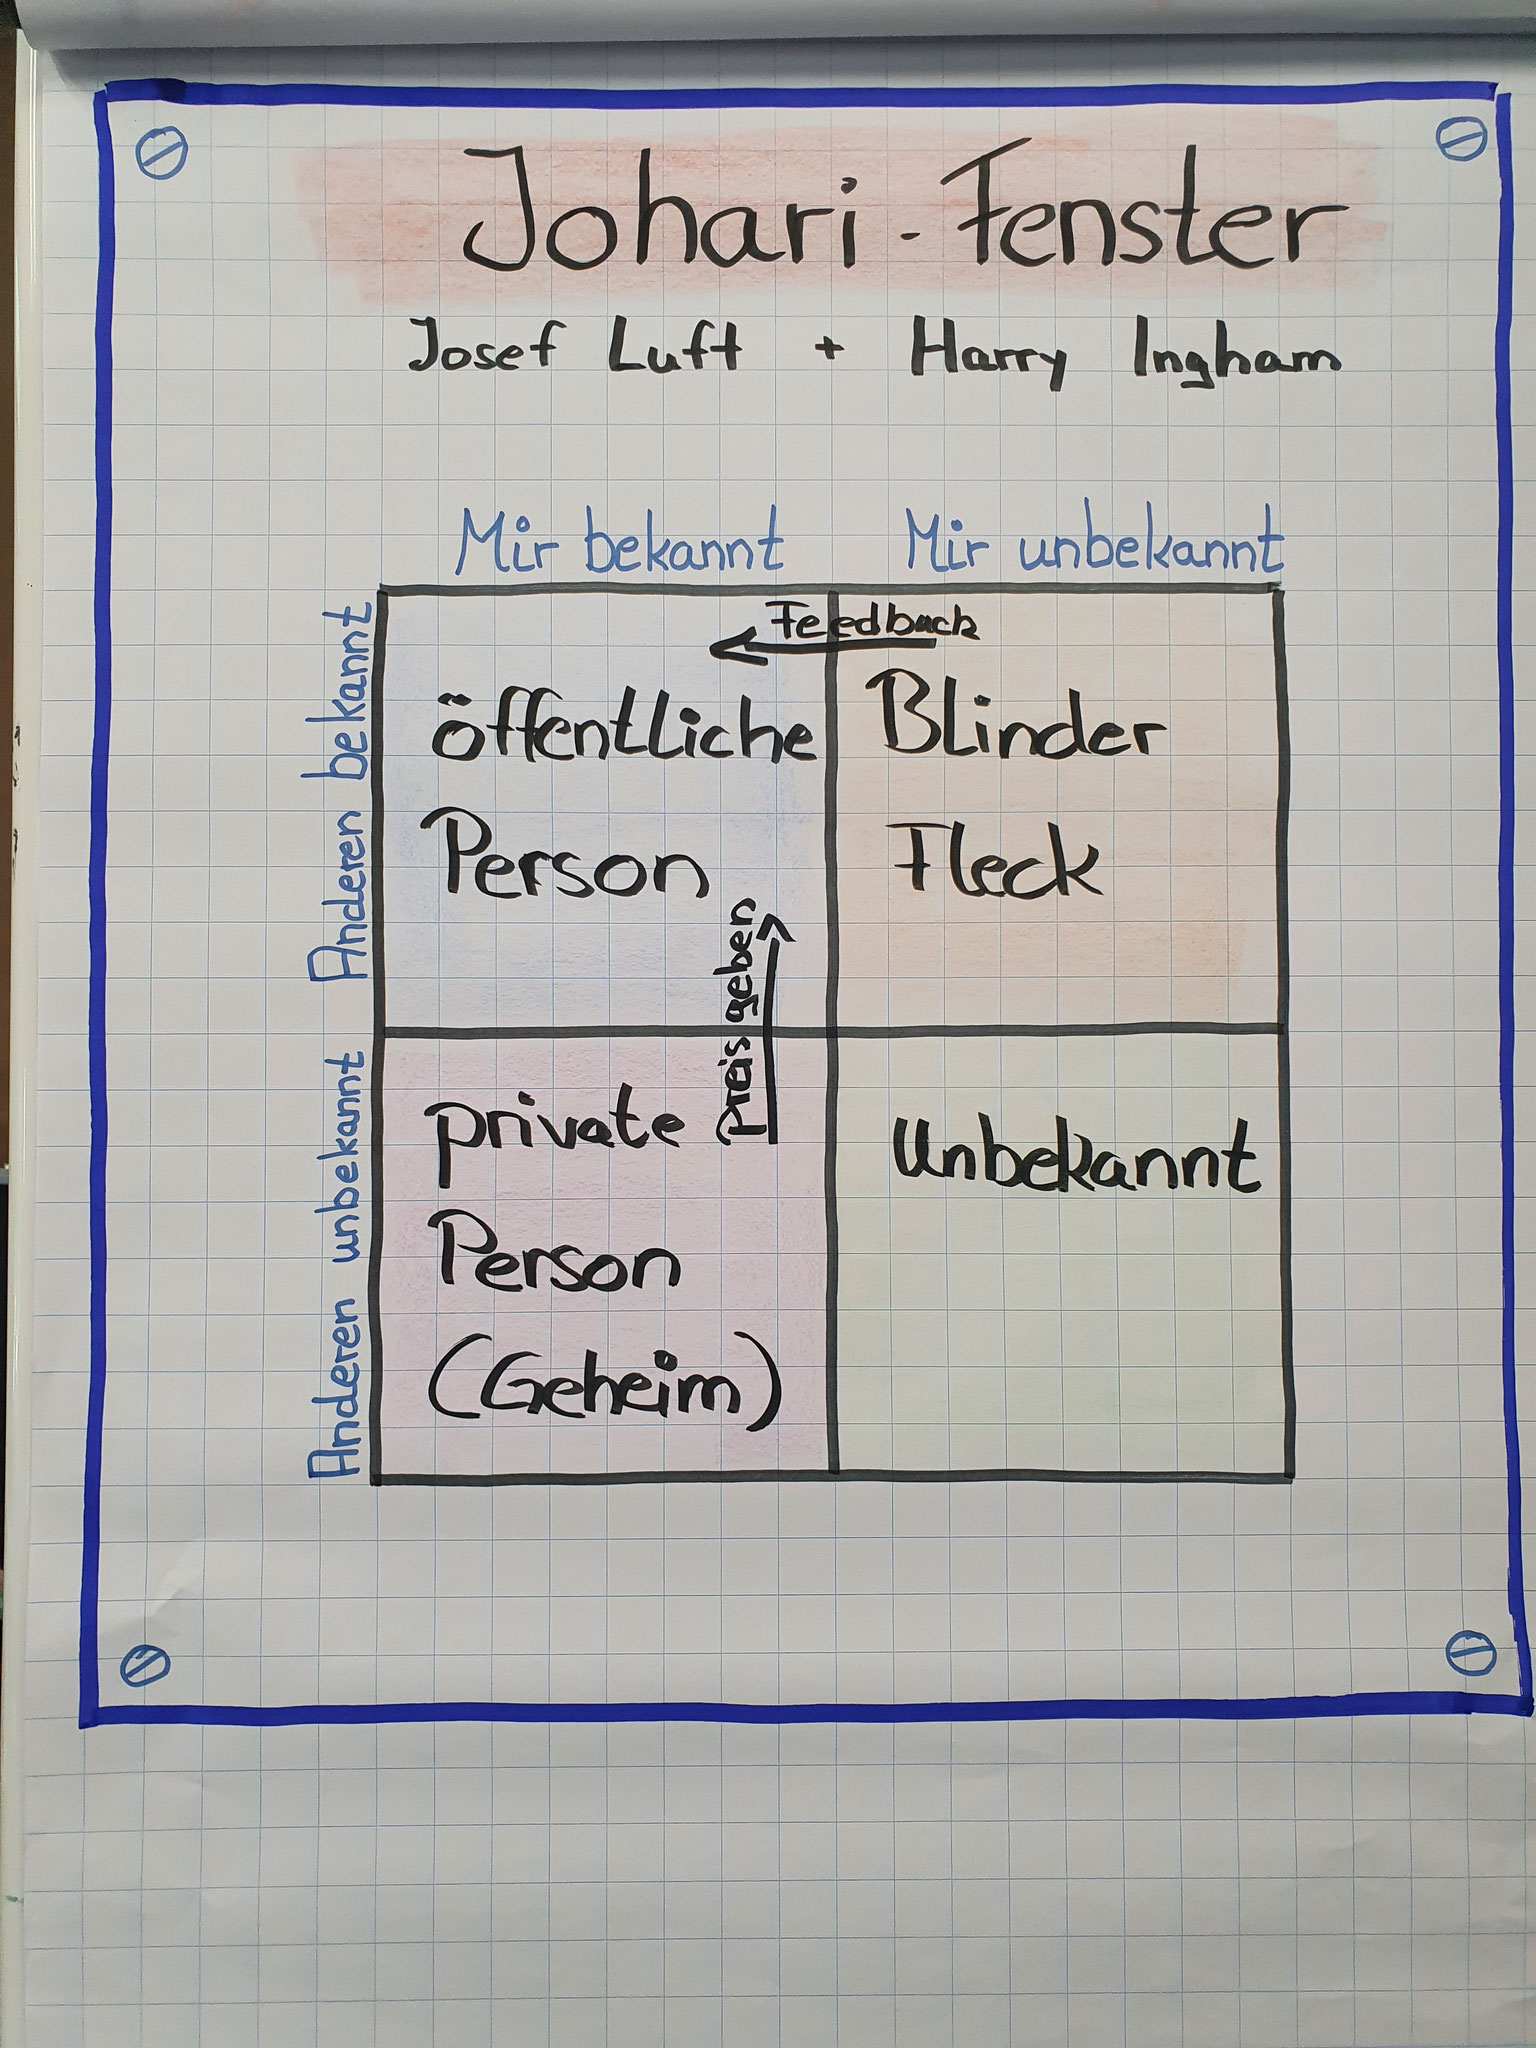 Johari-Fenster
Josef Luft + Harry Ingham
Mir bekannt
Mir unbekannt
Anderen bekannt
Feedback
öffentliche
Person
Blinder
Fleck
Preis geben
Anderen unbekannt
private
Person
(Geheim)
Unbekannt